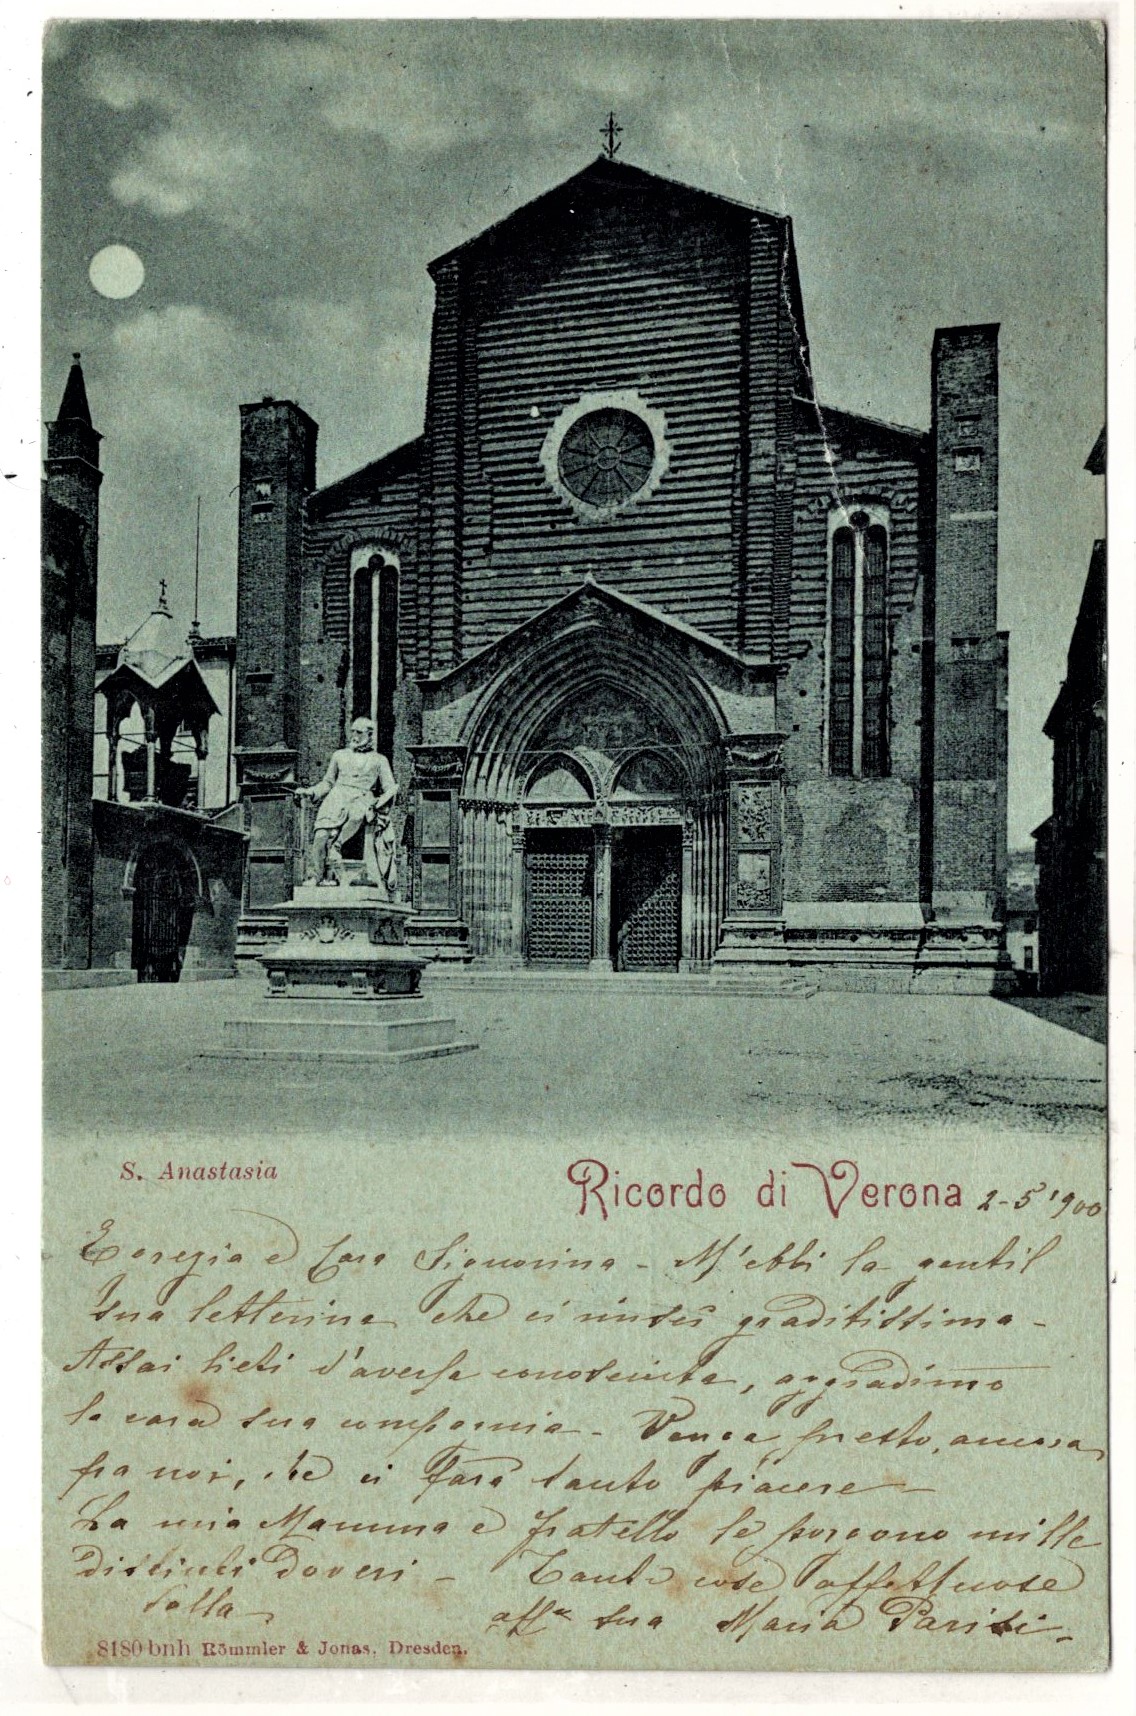 S. Anastasia
Ricordo di Verona 2-5 '900
Egregia e Cara Signorina - M'ebbi la gentil
sua letterina che ci riuscì graditissima -
Assai lieti d'averla conosciuta, aggradimmo
la cara sua compagnia - Venga presto, ancora
fra noi, chè ci farà tanto piacere -
La mia Mamma e fratello le porgono mille
distinti doveri - Tante cose affettuose
dalla aff.ª sua Maria Parisi -
8180 bnh Römmler & Jonas, Dresden.